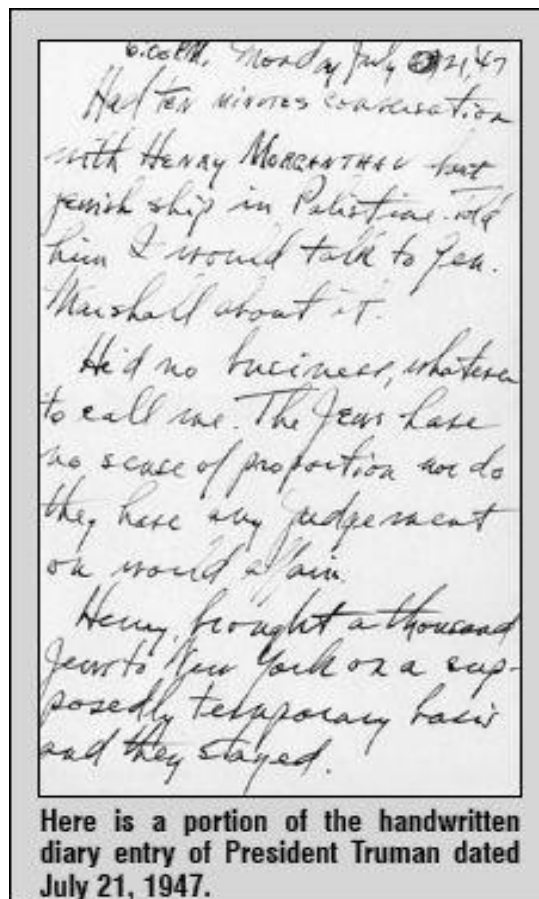 6:00 P.M. Monday July 21, '47
Had ten minutes conversation
with HENRY MORGENTHAU
Jewish ship in Palistine. Told
him I would talk to Gen.
Marshall about it.
He'd no business, whatever
to call me. The Jews have
no sense of proportion nor do
they have any judgement
on world affairs.
Henry, brought a thousand
Jews to New York on a sup-
posedly temporary basis
and they stayed.
Here is a portion of the handwritten
diary entry of President Truman dated
July 21, 1947.